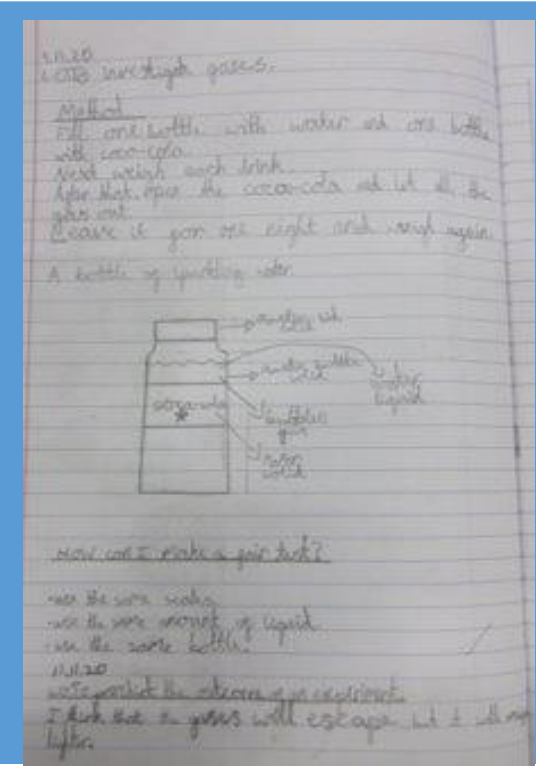 11.20
investigate gases.
Method
Fill one bottle with water and one bottle
with coca-cola.
Next weigh each drink.
After that, open the coca-cola and let all the
gas out
Leave it for one night and weigh again.
A bottle of sparkling water
lid
bottle
water
liquid
bubbles
gas
solid
How can I make a fair test?
-use the same scales
-use the same amount of liquid
-use the same bottle.
11.11.20
predict the outcome of an experiment.
I think that the gases will escape but it will
lighter.